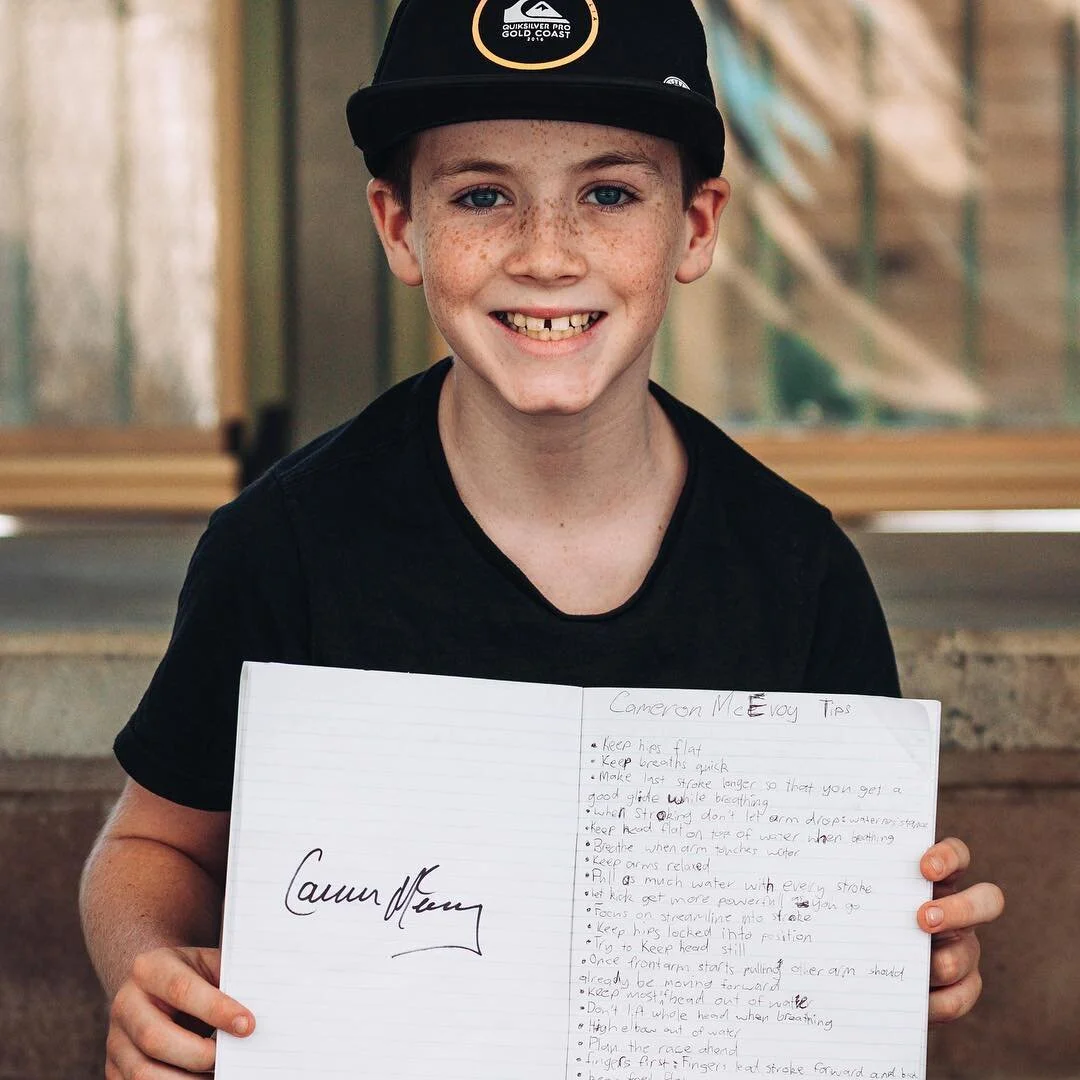 QUIKSILVER PRO
GOLD COAST
2016
Cameron McEvoy Tips
• Keep hips flat
• Keep breaths quick
• Make last stroke longer so that you get a
good glide while breathing
• when stroking don't let arm drop: water resistance
• Keep head flat on top of water when beathing
• Breathe when arm touches water
• Keep arms relaxed
• Pull as much water with every stroke
• let kick get more powerfull as you go
• Focus on streamline into stroke
• Keep hips locked into position
• Try to keep head still
• Once front arm starts pulling other arm should
already be moving forward
• Keep most of head out of water
• Don't lift whole head when breathing
• High elbow out of water
• Plan the race ahead
• fingers first: Fingers lead stroke forward and back